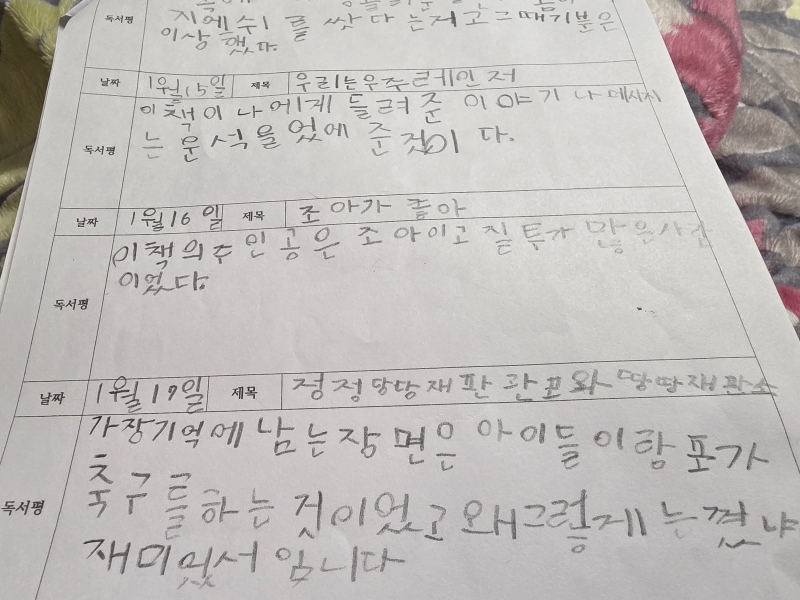 독서평
지에쉬 를 쌌다 는거고그때기분은
이상 했다.
날짜 1월15일 제목 우리는우주레인저
이 책이 나에게 들려준 이야기나메시지
독서평
는 운석을없에 준것이 다.
날짜 1월16일 제목 조아가 좋아
이책의주인공은 조아이고 질투가 많은사람
이었다.
독서평
날짜 1월17일 제목 정정당당재판관포와 땅땅재판소
가장기억에 남는장면은 아이들이랑 포가
축구를하는 것이었고왜그렇게 는꼈냐
독서평
재미있서 입니다